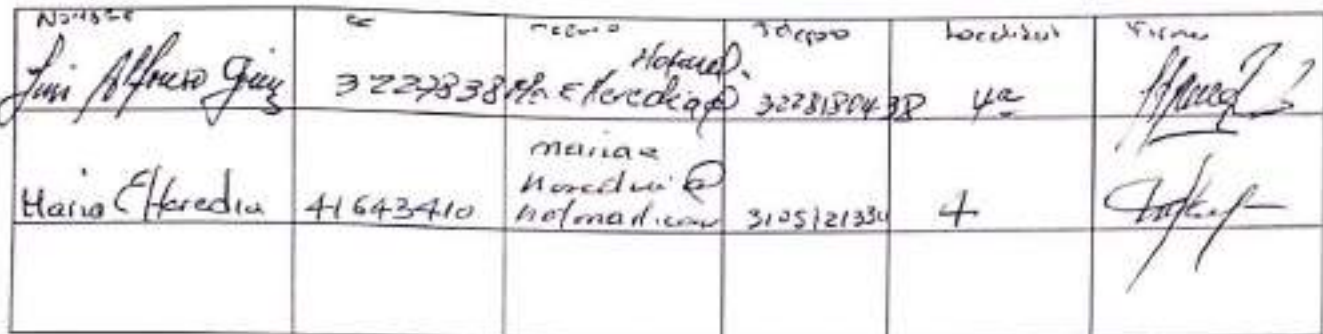 Nombre cc Correo Telefono Localidad Firma
Luis Alfonso 3227838 Hotmail. Ma E Heredia@ 3228180438 4a
Maria E Heredia 41643410 mariae heredia@ hotmail.com 3105121334 4